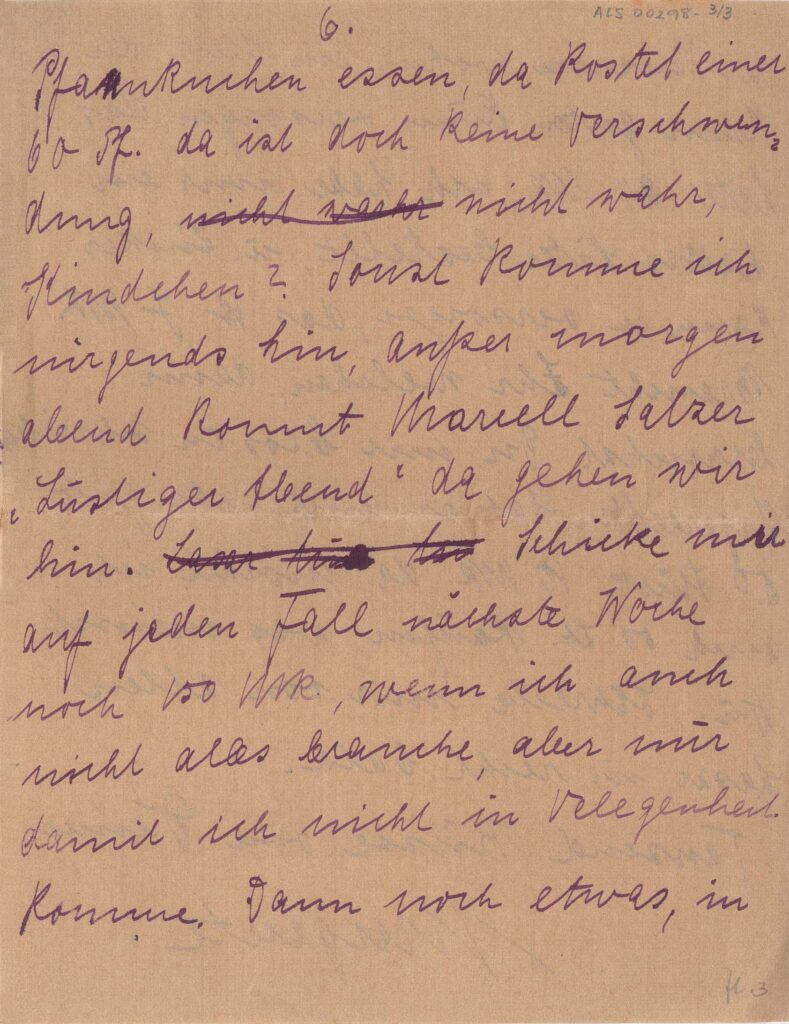 6.
ALS 00298-3/3
Pfannkuchen essen, da kostet einer
60 Pf. da ist doch keine Verschwen=
dung, nicht wahr nicht wahr,
Kindchen? Sonst komme ich
nirgends hin, außer morgen
abend kommt Marcell Salzer
„Lustiger Abend“ da gehen wir
hin. Schicke mir
auf jeden Fall nächste Woche
noch 150 Mk., wenn ich auch
nicht alles brauche, aber nur
damit ich nicht in Velegenheit
komme. Dann noch etwas, in
fl. 3